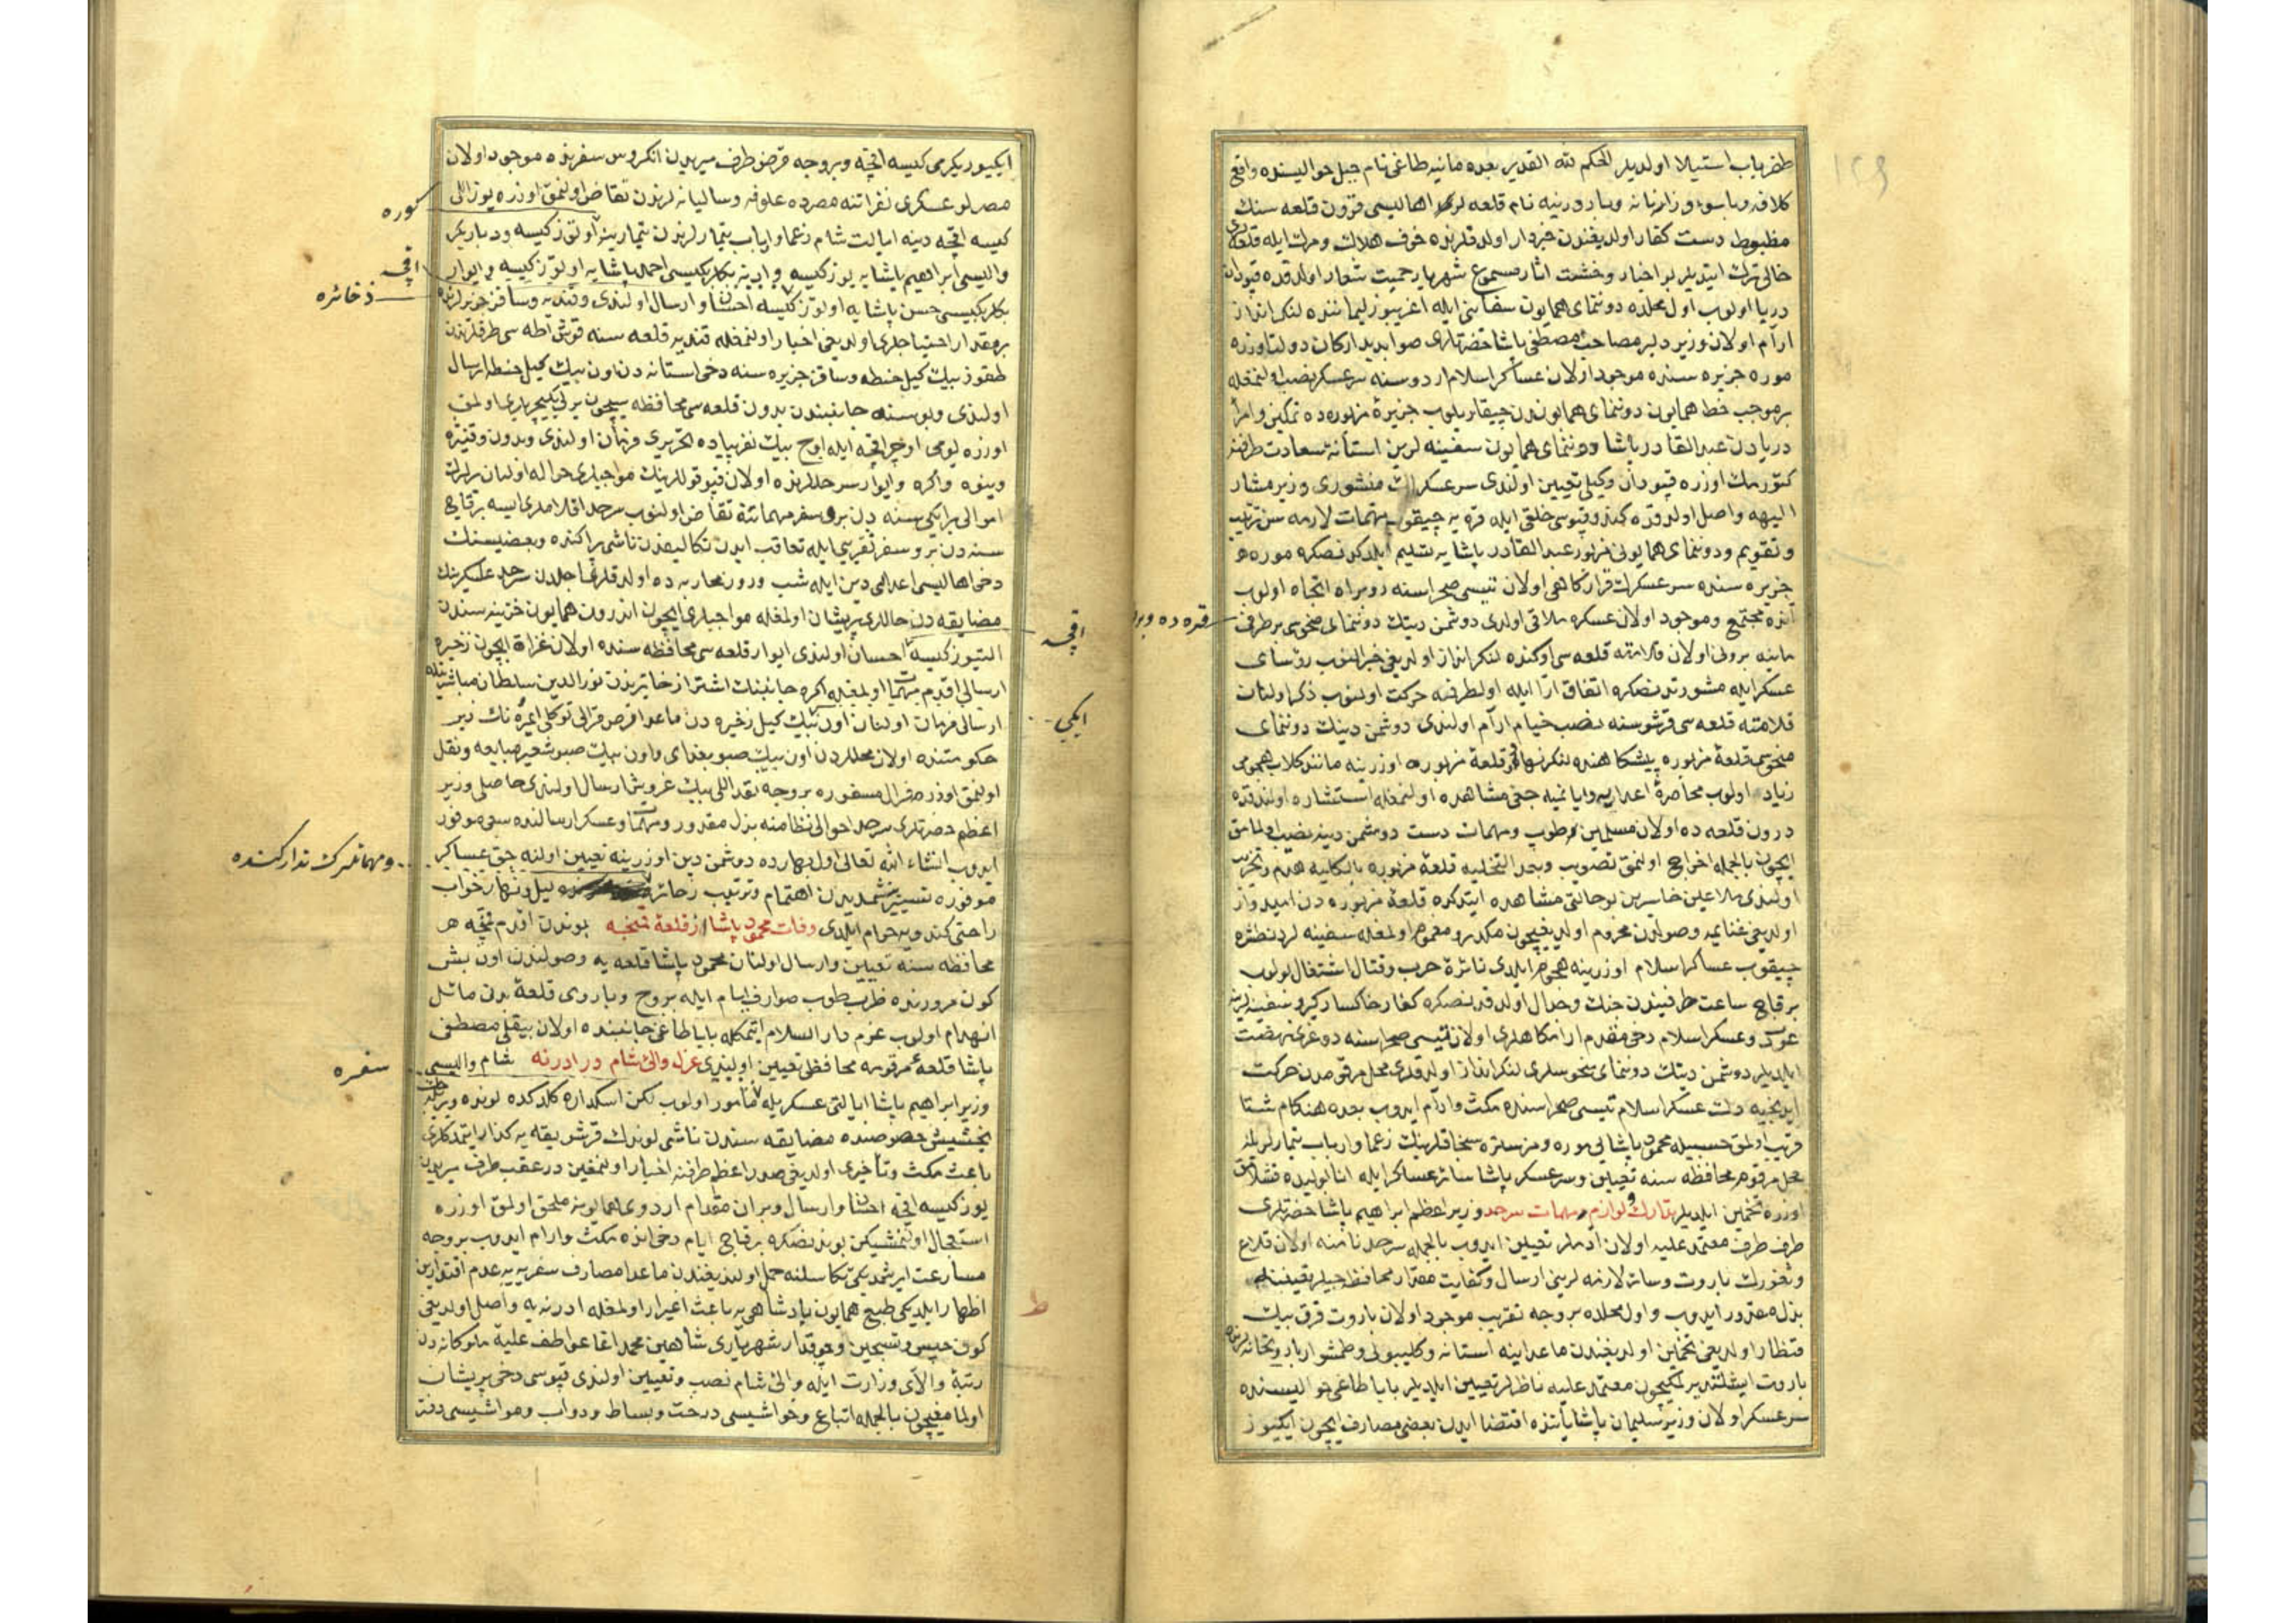 ۱۲۹
ظفرياب استيلا اولديلر الحكم لله القدير بعده مانيه طاغى نام جبل حواليسنده واقع
كلافه و باسوه و زارناته و باردونيه نام قلعه لرك اهاليسى قرون قلعه سنك
مظبوط دست كفار اولديغندن خبردار اولدقلرنده خوف هلاك و مرك ايله قلعه لرى
خالى ترك ايتديلر بو اخبار وحشت اثار مسموع شهريار حميت شعار اولدقده قپودان
دريا اولوب اول محلده دوننماى همايون سفاينى ايله اغريبوز ليماننده لنكر انداز
ارام اولان وزير دلير مصاحب مصطفى پاشا حضرتلرى صوابديد اركان دولت اوزره
موره جزيره سنده موجود اولان عساكر اسلام اردوسنه سرعسكر نصب اولنمغله
برموجب خط همايون دوننماى همايوندن چيقاريلوب جزيرهٔ مزبوره ده تمكين و امرا
دريادن عبد القادر پاشا دوننماى همايون سفينه لرين استانهٔ سعادت طرفنه
كتورمك اوزره قپودان وكيلى تعيين اولندى سرعسكرلك منشورى وزير مشار
اليهه واصل اولدوقده كندو قپوسى خلقى ايله قره يه چيقوب مهمات لازمه سن ترتيب
و تقويم و دوننماى همايونى مزبور عبد القادر پاشايه تسليم ايلدكدنصكره موره
جزيره سنده سرعسكرلك قراركاهى اولان تيپسى صحراسنه روبراه اتجاه اولوب
انده مجتمع و موجود اولان عسكره ملاقى اولدى دوشمن دينك دوننماى منحوسى بر طرفى
قره ده و بر
مانيه برونى اولان قلامته قلعه سى اوكنده لنكر انداز اولديغى خبر النوب رؤساى
عسكر ايله مشورتدنصكره اتفاق ارا ايله اولطرفه حركت اولنوب ذكر اولنان
قلامته قلعه سى قرشوسنه نصب خيام ارام اولندى دوشمن دينك دوننماى
منحوسى قلعهٔ مزبوره پيشكاهنده لنكر قلعهٔ مزبوره اوزرينه مانند كلاب هجومى
زياده اولوب محاصرهٔ اعدا مشاهده اولنمغله استشاره اولندقده
درون قلعه ده اولان مسلمين و طوپ و مهمات دست دوشمن دينه نصيب اولمامق
ايچون بالجمله اخراج اولنمق تصويب و بعد التخليه قلعهٔ مزبوره بالكليه هدم و تخريب
اولندى ملاعين خاسرين بو حالتى مشاهده ايتدكده قلعهٔ مزبوره دن اميدوار
اولديغى غنايمه وصولدن محروم اولديغيچون مكدر و مغموم اولمغله سفينه لردن طشره
چيقوب عساكر اسلام اوزرينه هجوم ايلدى نائرهٔ حرب و قتال اشتغال اولوب
بر قاچ ساعت طرفيندن جنك و جدال اولدقدنصكره كفار خاكسار كيرو سفينه لرينه
عودت و عسكر اسلام دخى مقدم ارامكاهلرى اولان تيپسى صحراسنه دوغرى نهضت
ايلديلر دوشمن دينك دوننماى منحوسلرى لنكر انداز اولدقلرى محل مرقومدن حركت
ايدنجيه دك عسكر اسلام تيپسى صحراسنده مكث و ارام ايدوب بعده هنكام شتا
قريب اولمق حسبيله محمود پاشايى موره و مزستره سنجاقلرينك زعما و ارباب تيمارلريله
محل مرقومى محافظه سنه تعيين و سرعسكر پاشا سائر عساكر ايله انابوليده قشلامق
اوزره تخمين ايلديلر تدارك لوازم و مهمات سرحد وزير اعظم ابراهيم پاشا حضرتلرى
طرف طرف معتمد عليه اولان ادملر تعيين ايدوب بالجمله سرحد نامنه اولان قلاع
و ثغورك باروت و سائر لازمه لرينى ارسال و كفايت مقدار محافظه جيلر تعييننه
بذل مقدور ايدوب و اول محلده بروجه تقريب موجود اولان باروت قرق بيك
قنطار اولديغى تخمين اولديغندن ماعدا ينه استانه و كليبولى و طمشوار باروتخانه لرنده
باروت ايشلتديرلمكيچون معتمد عليه ناظرلر تعيين ايلديلر بابا طاغى حواليسنده
سرعسكر اولان وزير سليمان پاشايه انده اقتضا ايدن بعض مصارف ايچون ايكيوز
ايكيوز يكرمى كيسه اقچه و بروجه قرض طرف ميريدن انكروس سفرنده موجود اولان
مصرلو عسكرى نفراتنه مصرده علوفه و ساليانه لرندن تقاض اولنمق اوزره يوز اللى
كوره
كيسه اقچه دينه ايالت شام زعما و ارباب تيمارلرندن تيمارينه اوتوز كيسه و دياربكر
واليسى ابراهيم پاشايه يوز كيسه و ادنه بكلربكيسى احمد پاشايه اوتوز كيسه و ايوار
اقچه
بكلربكيسى حسن پاشايه اوتوز كيسه احسان و ارسال اولندى و قنديه و ساقز جزيرلرنده
ذخائره
بر مقدار احتياجلرى اولديغى اخبار اولنمغله قنديه قلعه سنه قوش اطه سى طرفلرندن
طقوز بيك كيل حنطه و ساقز جزيره سنه دخى استانه دن اون بيك كيل حنطه ارسال
اولندى و بوسنه جانبندن بدون قلعه سى محافظه سيچون يرلى يكيچرى اولمق
اوزره يومى اوچر اقچه ايله اوچ بيك نفر پياده تحريرى فرمان اولندى و بدون و قنيژه
وينوه و اكره و ايوار سرحدلرنده اولان قپوقوللرينك مواجبلرى حواله اولنان يرلرك
اموالى بر ايكى سنه دن برو سفر مهماتنه تقاض اولنوب سرحد اقلاملرى ايسه بر قاچ
سنه دن برو سفر تقريبى ايله تعاقب ايدن تكاليفدن ناشى پراكنده و بعضيسنك
دخى اهاليسى اعداى دين ايله شب و روز محاربه ده اولدقلرى اجلدن سرحد عسكرينك
مضايقه دن حاللرى پريشان اولمغله مواجبلرى ايچون اندرون همايون خزينه سندن
اقچه
التيوز كيسه احسان اولندى ايوار قلعه سى محافظه سنده اولان غزاة ايچون زخيره
ارسالى اقدم مهمات اولمغله اكره جانبنك اشتراز خانلرندن نورالدين سلطان مباشرتيله
ارسالى فرمان اولنان اون بيك كيل زخيره دن ماعدا قرص قرالى توكلى ايمره نك زير
ايكى
حكومتنده اولان محللردن اون بيك صبو بغداى و اون بيك صبو شعير مبايعه و نقل
اولنمق اوزره قرال مسفوره بروجه نقد اللى بيك غروش ارسال اولندى حاصلى وزير
اعظم حضرتلرى سرحد احوالى نظامنه بذل مقدور و مهمات و عسكر ارسالنده سعى موفور
ايدوب انشاء الله تعالى اول بهارده دوشمن دين اوزرينه تعيين اولنه جق عساكر
و مهماتلرك تداركنده
موفوره تسييرنه شمديدن اهتمام و ترتيب زخائر ليل و نهار خواب
راحتى كندويه حرام ايلدى وفات محمود پاشا از قلعهٔ قمنجه بوندن اقدم قمنچه
محافظه سنه تعيين و ارسال اولنان محمود پاشا قلعه يه وصولندن اون بش
كون مرورنده ضرب طوپ صوارف ايام ايله بروج و باروى قلعهٔ بدن مائل
انهدام اولوب عزم دار السلام ايتمكله بابا طاغى جانبنده اولان بيقلى مصطفى
پاشا قلعهٔ مرقومه محافظى تعيين اولندى عزل والى شام در ادرنه شام واليسى
سفره
وزير ابراهيم پاشا ايالتى عسكريله مامور اولوب لكن اسكداره كلدكده لونده ويرلجك
بخشيش خصوصنده مضايقه سندن ناشى لوندك قرشو يقه يه كذار ايتمدكلرى
باعث مكث و تأخيرى اولديغى صدر اعظم طرفنه اخبار اولنمغين درعقب طرف ميريدن
يوز كيسه اقچه احسان و ارسال و بر ان مقدم اردوى همايونه ملحق اولمق اوزره
استعجال اولنمشيكن بوندنصكره بر قاچ ايام دخى انده مكث و ارام ايدوب بروجه
مسارعت ايرشمديكى تكاسلنه حمل اولنديغندن ماعدا مصارف سفريه يه عدم اقتدارين
اظهار ايلديكى طبع همايون پادشاهى يه باعث اغبرار اولمغله ادرنه يه واصل اولديغى
ط
كون حبس و تسجين و چوقدار شهريارى شاهين محمد اغا عواطف عليهٔ ملوكانه دن
رتبهٔ والاى وزارت ايله والئ شام نصب و تعيين اولندى قپوسى دخى پريشان
اولمامغيچون بالجمله اتباع و حواشيسى درخت و بساط و دواب و مواشيسى دفتر